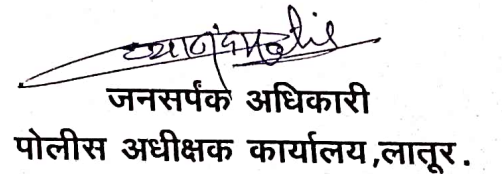 जनसर्पंक अधिकारी
पोलीस अधीक्षक कार्यालय,लातूर.